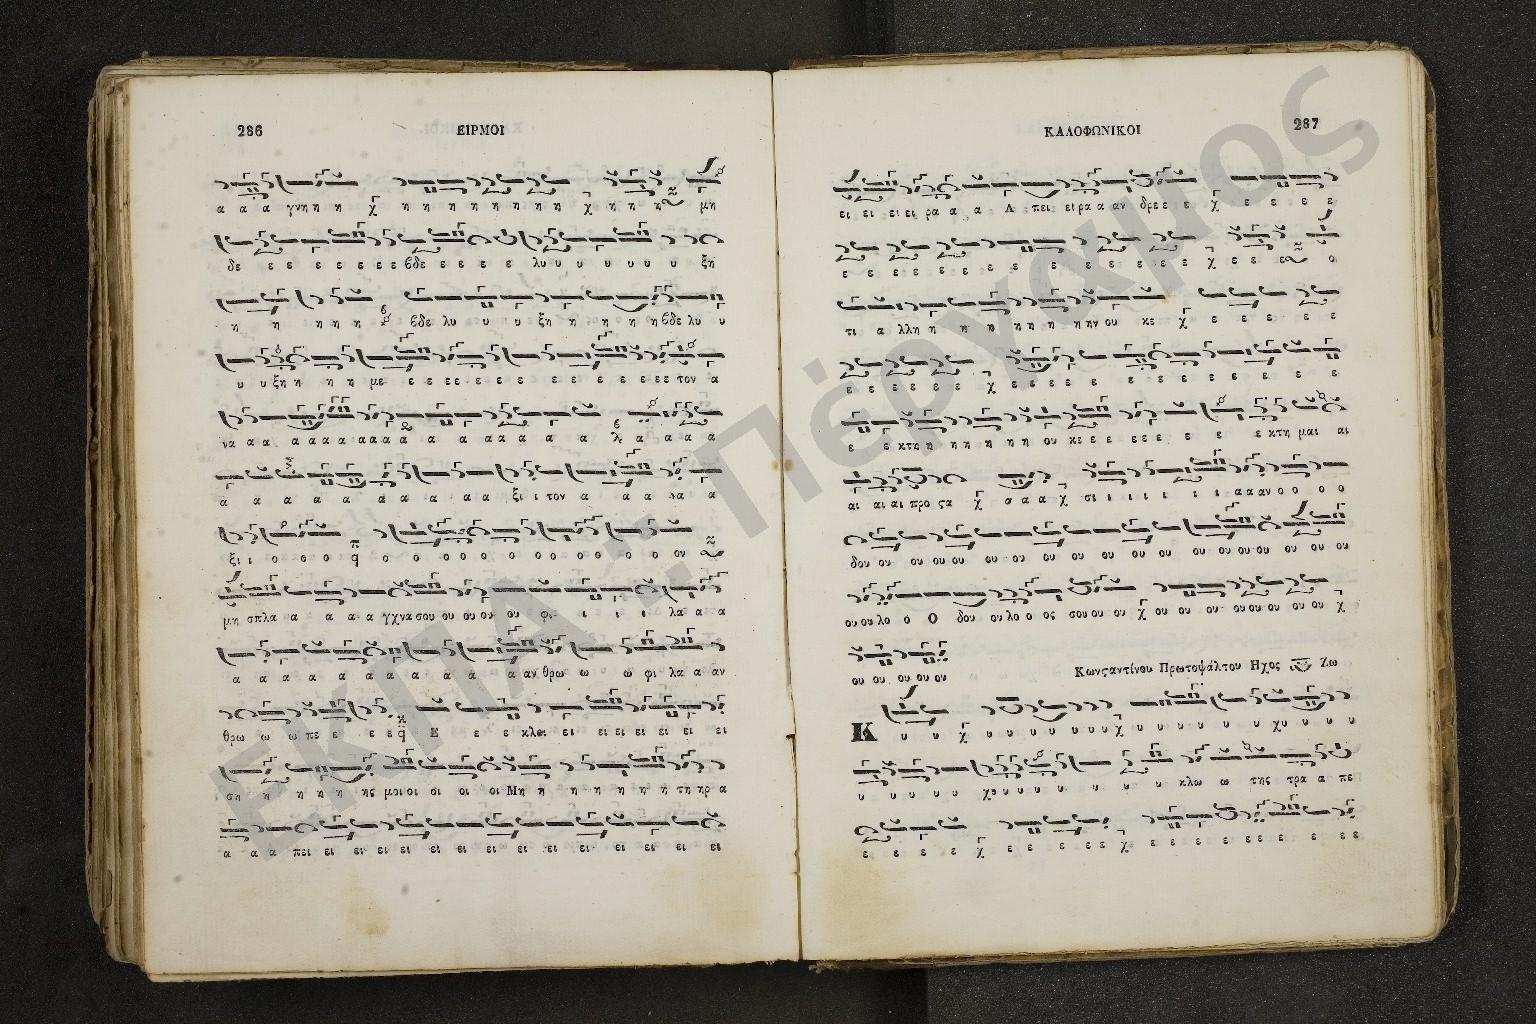 286 ΕΙΡΜΟΙ
α α α γνη η η χ η η η η η η η η η χ η η η μη
δε ε ε ε ε ε ε ε βδε ε ε ε ε λυ υ υ υ υ υ υ ξη
η η η η η βδε λυ υ υ υ ξη η η η η βδε λυ υ
υ υ ξη η η η με ε ε ε ε ε ε ε ε ε ε ε ε ε ε τον α
να α α α α α α α α α α α α α α α α α α α α α
α α α α α α α α α α ξι ι τον α α α να α
ξι ι ο ο ο ο ο ο ο ο ο ο ο ο ο ο ο ο ο ον
μη σπλα α α α α γχνα σου ου ου ου ου φι ι ι ι λα α α
α α α α α α α α α α α αν θρω ω ω φι λα α αν
θρω ω ω πε ε ε ε Ε ε ε κλει ει ει ει ει ει ει ει
ση η η η η ης μοι οι οι οι οι Μη η η η η η η τη ηρ α
α α α πει ει ει ει ει ει ει ει ει ει ει ει ει ει
ΚΑΛΟΦΩΝΙΚΟΙ 287
ει ει ει ει ρα α α Α πει ει ρα α αν δρε ε ε χ ε ε ε ε ε
ε ε ε ε ε ε ε ε ε ε ε ε ε ε χ ε ε ε ο
τι α λλη η η η η η η η ην ου κε χ ε ε ε ε ε
ε ε ε ε ε ε χ ε ε ε ε ε ε ε ε ε ε ε ε
ε ε κτη η η η η η ου κε ε ε ε ε ε ε ε ε κτη μαι αι
αι αι αι προ ςα χ α α α χ σι ι ι ι ι ι ι α α αν ο ο ο ο
δου ου ου ου ου ου ου ου ου ου ου ου ου ου ου ου ου
ου ου λο ο Ο δου ου λο ο ος σου ου ου χ ου ου ου ου ου ου ου ου χ
ου ου ου ου ου
Κωνςαντίνου Πρωτοψάλτου Ηχος Ζω
Κ υ υ χ υ υ υ υ υ υ υ χ υ υ υ υ υ υ χυ υ υ υ
υ υ υ υ υ χυ υ υ υ υ υ υ υ υ κλω ω της τρα α πε
ε ε ε ε χ ε ε ε ε ε χ ε ε ε ε ε ε ε ε ε
ΕΚΠΑ: Πέργαμος